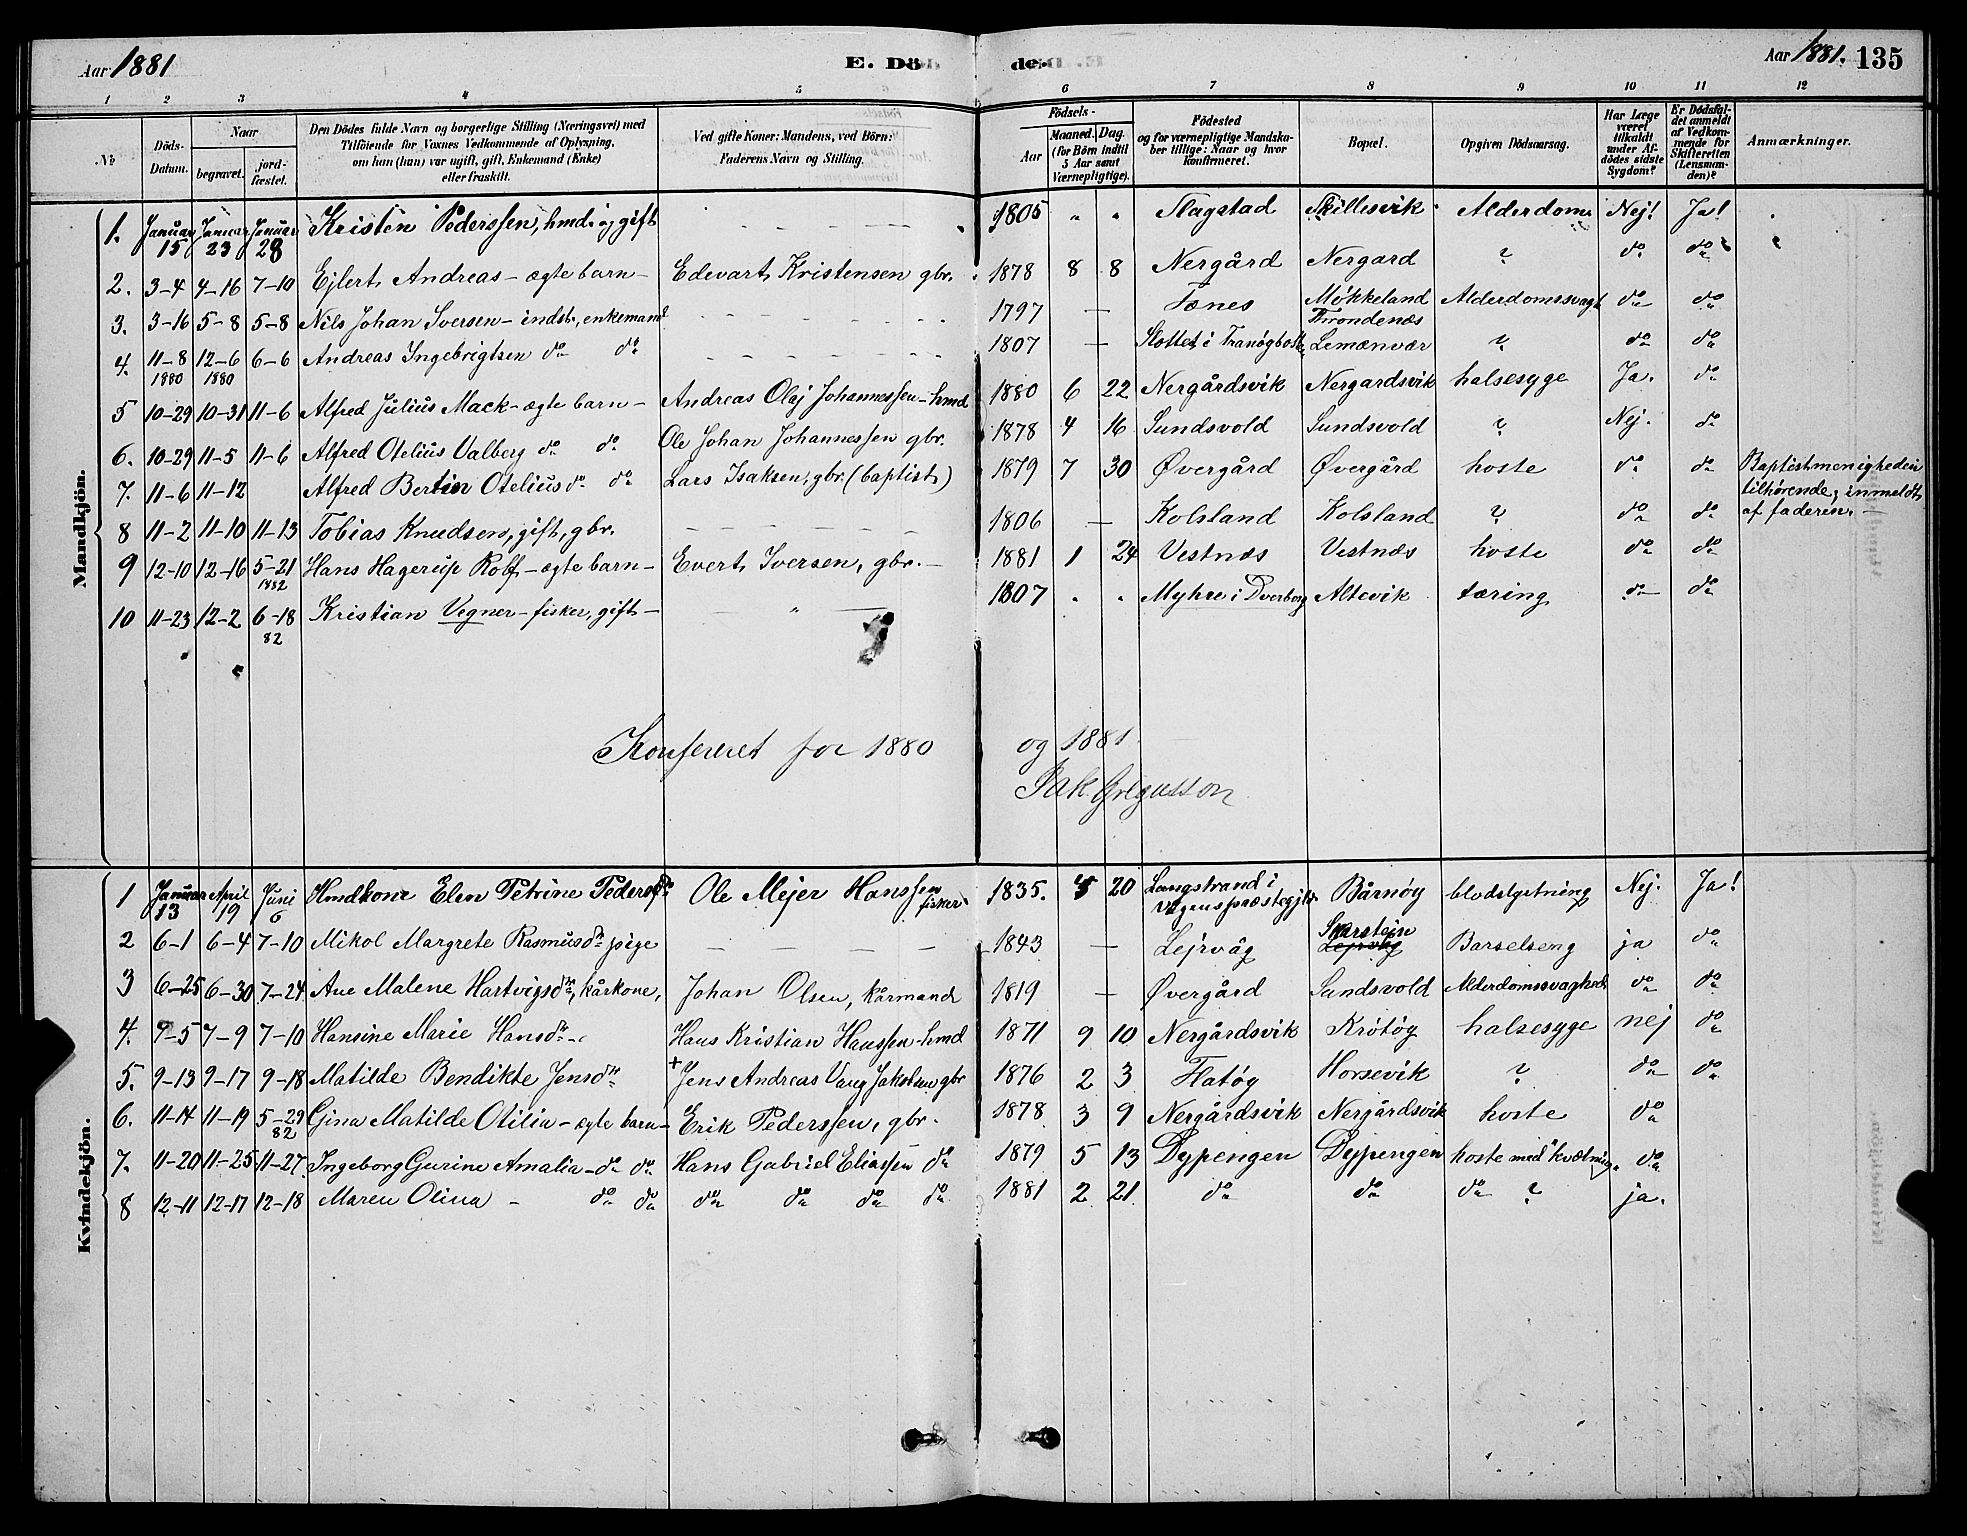 Aar 1881
E. Döde.
Aar 1881. 135
1 2 3 4 5 6 7 8 9 10 11 12
No
Döds-Datum.
Naar
begravet.
jordfæstet.
Den Dödes fulde Navn og borgerlige Stilling (Næringsvei) med
Tilföiende for Voxnes Vedkommende af Oplysning,
om han (hun) var ugift, gift, Enkemand (Enke)
eller fraskilt.
Ved gifte Koner: Mandens, ved Börn:
Faderens Navn og Stilling.
Födsels-
Aar
Maaned. Dag.
(for Börn indtil
5 Aar samt
Værnepligtige).
Födested
og for værnepligtige Mandskaber tillige: Naar og hvor
konfirmeret.
Bopæl.
Opgiven Dödsaarsag.
Har Læge
været
tilkaldt
under Afdödes sidste
Sygdom?
Er Dödsfaldet anmeldt
af Vedkommende for
Skifteretten
(Lensmanden)?
Anmærkninger.
Mandkjön.
1. Januar 15 Januar 23 Januar 28 Kristen Pederssen, hmd. og gift - - - - - 1805 " " Slagstad Skillesvik Alderdom Nej! Ja!
2. 3-4 4-16 7-10 Ejlert Andreas - ægte barn - Edevart Kristensen gbr. 1878 8 8 Nergård Nergard ? do do
3. 3-16 5-8 5-8 Nils Johan Iversen - indst, enkemand - - - - - 1797 — Tænes Møkkeland Throndenæs Alderdomssvagh do do
4. 11-8 1880 12-6 1880 6-6 Andreas Ingebrigtsen do do - - - - - 1807 — Slottet i Tranøgbotn Lemænvær ? do do
5 10-29 10-31 11-6 Alfred Julius Mack - ægte barn - Andreas Olaj Johannessen - hmd 1880 6 22 Nergårdsvik Nergardsvik halsesyge Ja. do
6. 10-29 11-5 11-6 Alfred Otelius Valberg do do Ole Johan Johannessen gbr. 1878 4 16 Sundsvold Sundsvold ? Nej. do
7. 11-6 11-12 Alfred Bertin Otelius do do Lars Isaksen, gbr. (baptist) 1879 7 30 Øvergård Øvergård hoste do do Baptistmenigheden
tilhørende, inmeldt
af faderen. -
8 11-2 11-10 11-13 Tobias Knudsen, gift, gbr. - - - - - 1806 — Kolsland Kolsland ? do do
9 12-10 12-16 5-21 1882 Hans Hagerup Rolf - ægte barn - Evert Iversen, gbr. - 1881 1 24 Vestnæs Vestnæs hoste do do
10 11-23 12-2 6-18 82 Kristian Vegner - fisker, gift - — " — 1807 " " Myhre i Dverberg Altevik tæring do do
Konfereret for 1880 og 1881
Jak. Gregusson
Kvindekjön.
1 Januar 13 April 19 Juni 6 Hmdkone Elen Petrine Pedersdr Ole Mejer Hanssen fisker 1835. 4 20 Langstrand i Vågens præstegjld Bårnøy blodstyrtning Nej. Ja!
2 6-1 6-4 7-10 Mikol Margrete Rasmusdr pige — — — — 1843 — Lejrvåg Skarstejn Lejrvåg Barselseng ja do
3 6-25 6-30 7-24 Ane Malene Hartvigsdr, kårkone, Johan Olsen, kårmand 1819 — Øvergård Sundsvold Alderdomssvaghed do do
4. 7-5 7-9 7-10 Hansine Marie Hansdr - Hans Kristian Hanssen - hmd 1871 9 10 Nergårdsvik Krötøg halsesyge nej do
5. 9-13 9-17 9-18 Matilde Bendikte Jensdr + Jens Andreas Vang Jakobsen gbr 1876 2 3 Flatøg Horsevik ? do do
6. 11-14 11-19 5-29 82 Gina Matilde Otilia - ægte barn - Erik Pederssen, gbr. 1878 3 9 Nergårdsvik Nergårdsvik hoste do
7. 11-20 11-25 11-27 Ingeborg Gurine Amalia - do do Hans Gabriel Eliassen do 1879 5 13 Dypengen Dypengen hoste med kvælning do
8 12-11 12-17 12-18 Maren Olina - do do do do do do 1881 2 21 do do do ? ja.